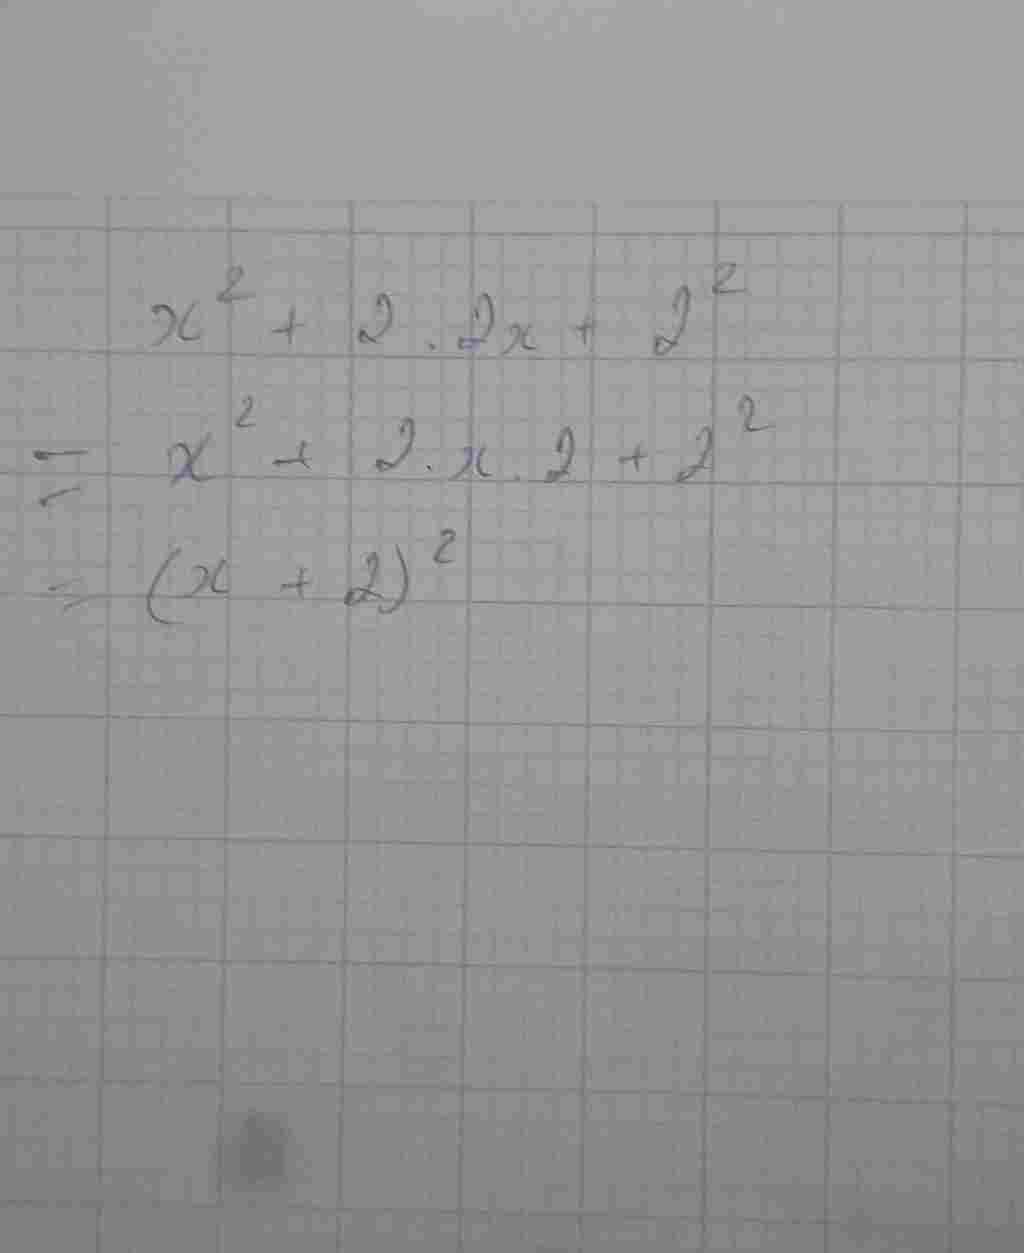 x² + 2 . 2x + 2²
= x² + 2 . x . 2 + 2²
= (x + 2)²